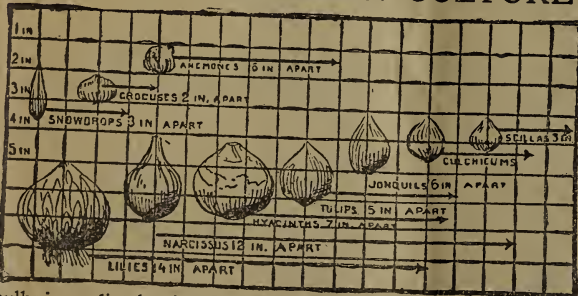 CULTURE
1 IN
2 IN
ANEMONES 6 IN APART
3 IN
CROCUSES 2 IN. APART
4 IN
SNOWDROPS 3 IN APART
SCILLAS 3 IN
COLCHICUMS
5 IN
JONQUILS 6 IN APART
TULIPS 5 IN APART
HYACINTHS 7 IN. APART
NARCISSUS 12 IN. APART
LILIES 14 IN APART